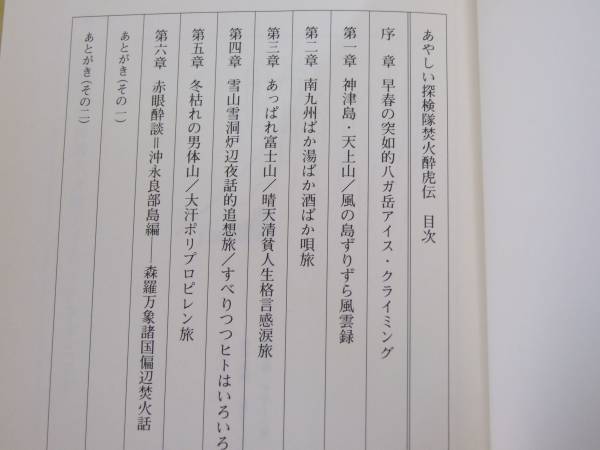 あやしい探検隊焚火酔虎伝　目次
序　章　早春の突如的八ガ岳アイス・クライミング
第一章　神津島・天上山／風の島ずりずら風雲録
第二章　南九州ばか湯ばか酒ばか唄旅
第三章　あっぱれ富士山／晴天清貧人生格言感涙旅
第四章　雪山雪洞炉辺夜話的追想旅／すべりつつヒトはいろいろ
第五章　冬枯れの男体山／大汗ポリプロピレン旅
第六章　赤眼酔談＝沖永良部島編――森羅万象諸国偏辺焚火話
あとがき（その一）
あとがき（その二）